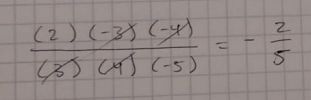 (2) (-3) (-4)
(3) (4) (-5) = - 2
5